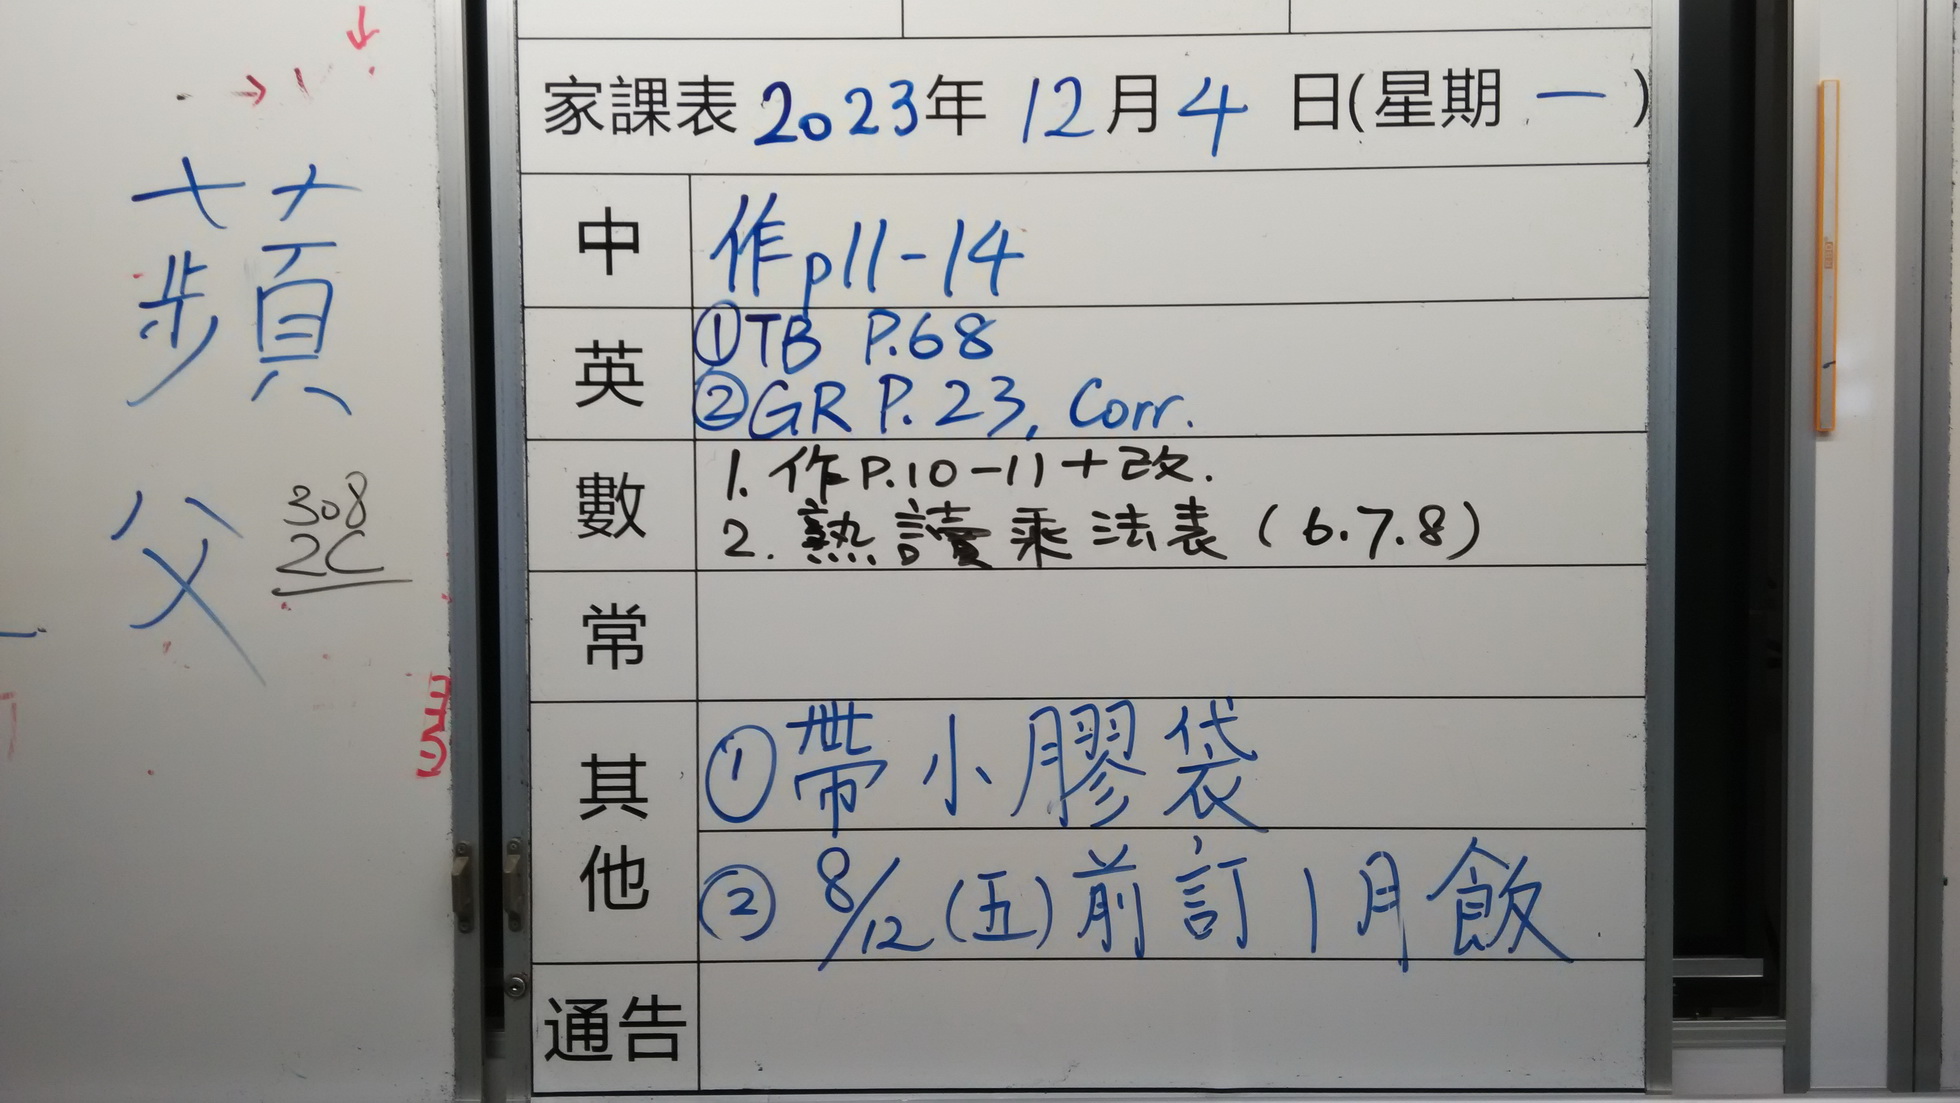 蘋
父
308
2C
家課表 2023年 12月4日(星期一)
中 作p11-14
英 ①TB P.68
②GR P.23, Corr.
數 1. 作P.10-11+改.
2. 熟讀乘法表(6.7.8)
常
其他 ①帶小膠袋
②8/12(五)前訂1月飯
通告